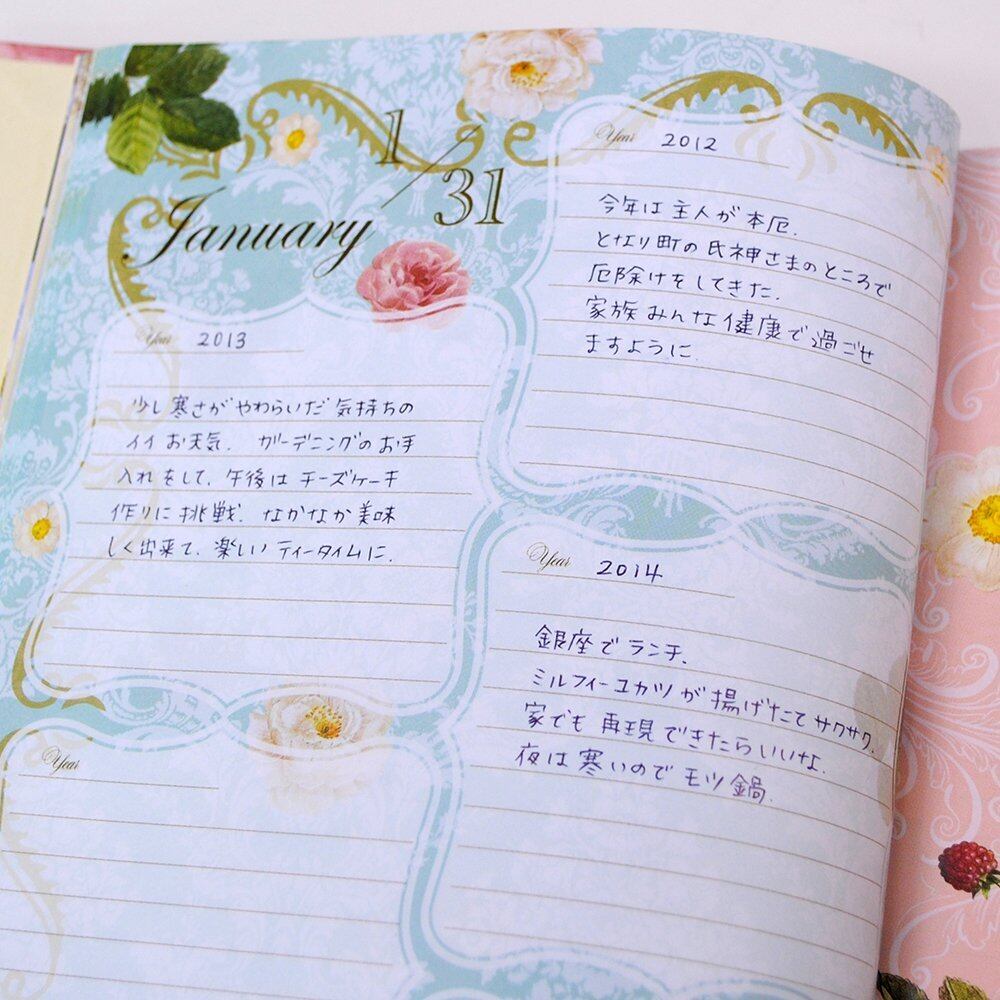 1/31
January
Year 2012
今年は主人が本厄.
となり町の氏神さまのところで
厄除けをしてきた.
家族みんな健康で過ごせ
ますように.
Year 2013
少し寒さがやわらいだ気持ちの
イイお天気. ガーデニングのお手
入れをして、午後はチーズケーキ
作りに挑戦. なかなか美味
しく出来て、楽しいティータイムに.
Year 2014
銀座でランチ.
ミルフィーユカツが揚げたてサクサク.
家でも再現できたらいいな.
夜は寒いのでモツ鍋.
Year